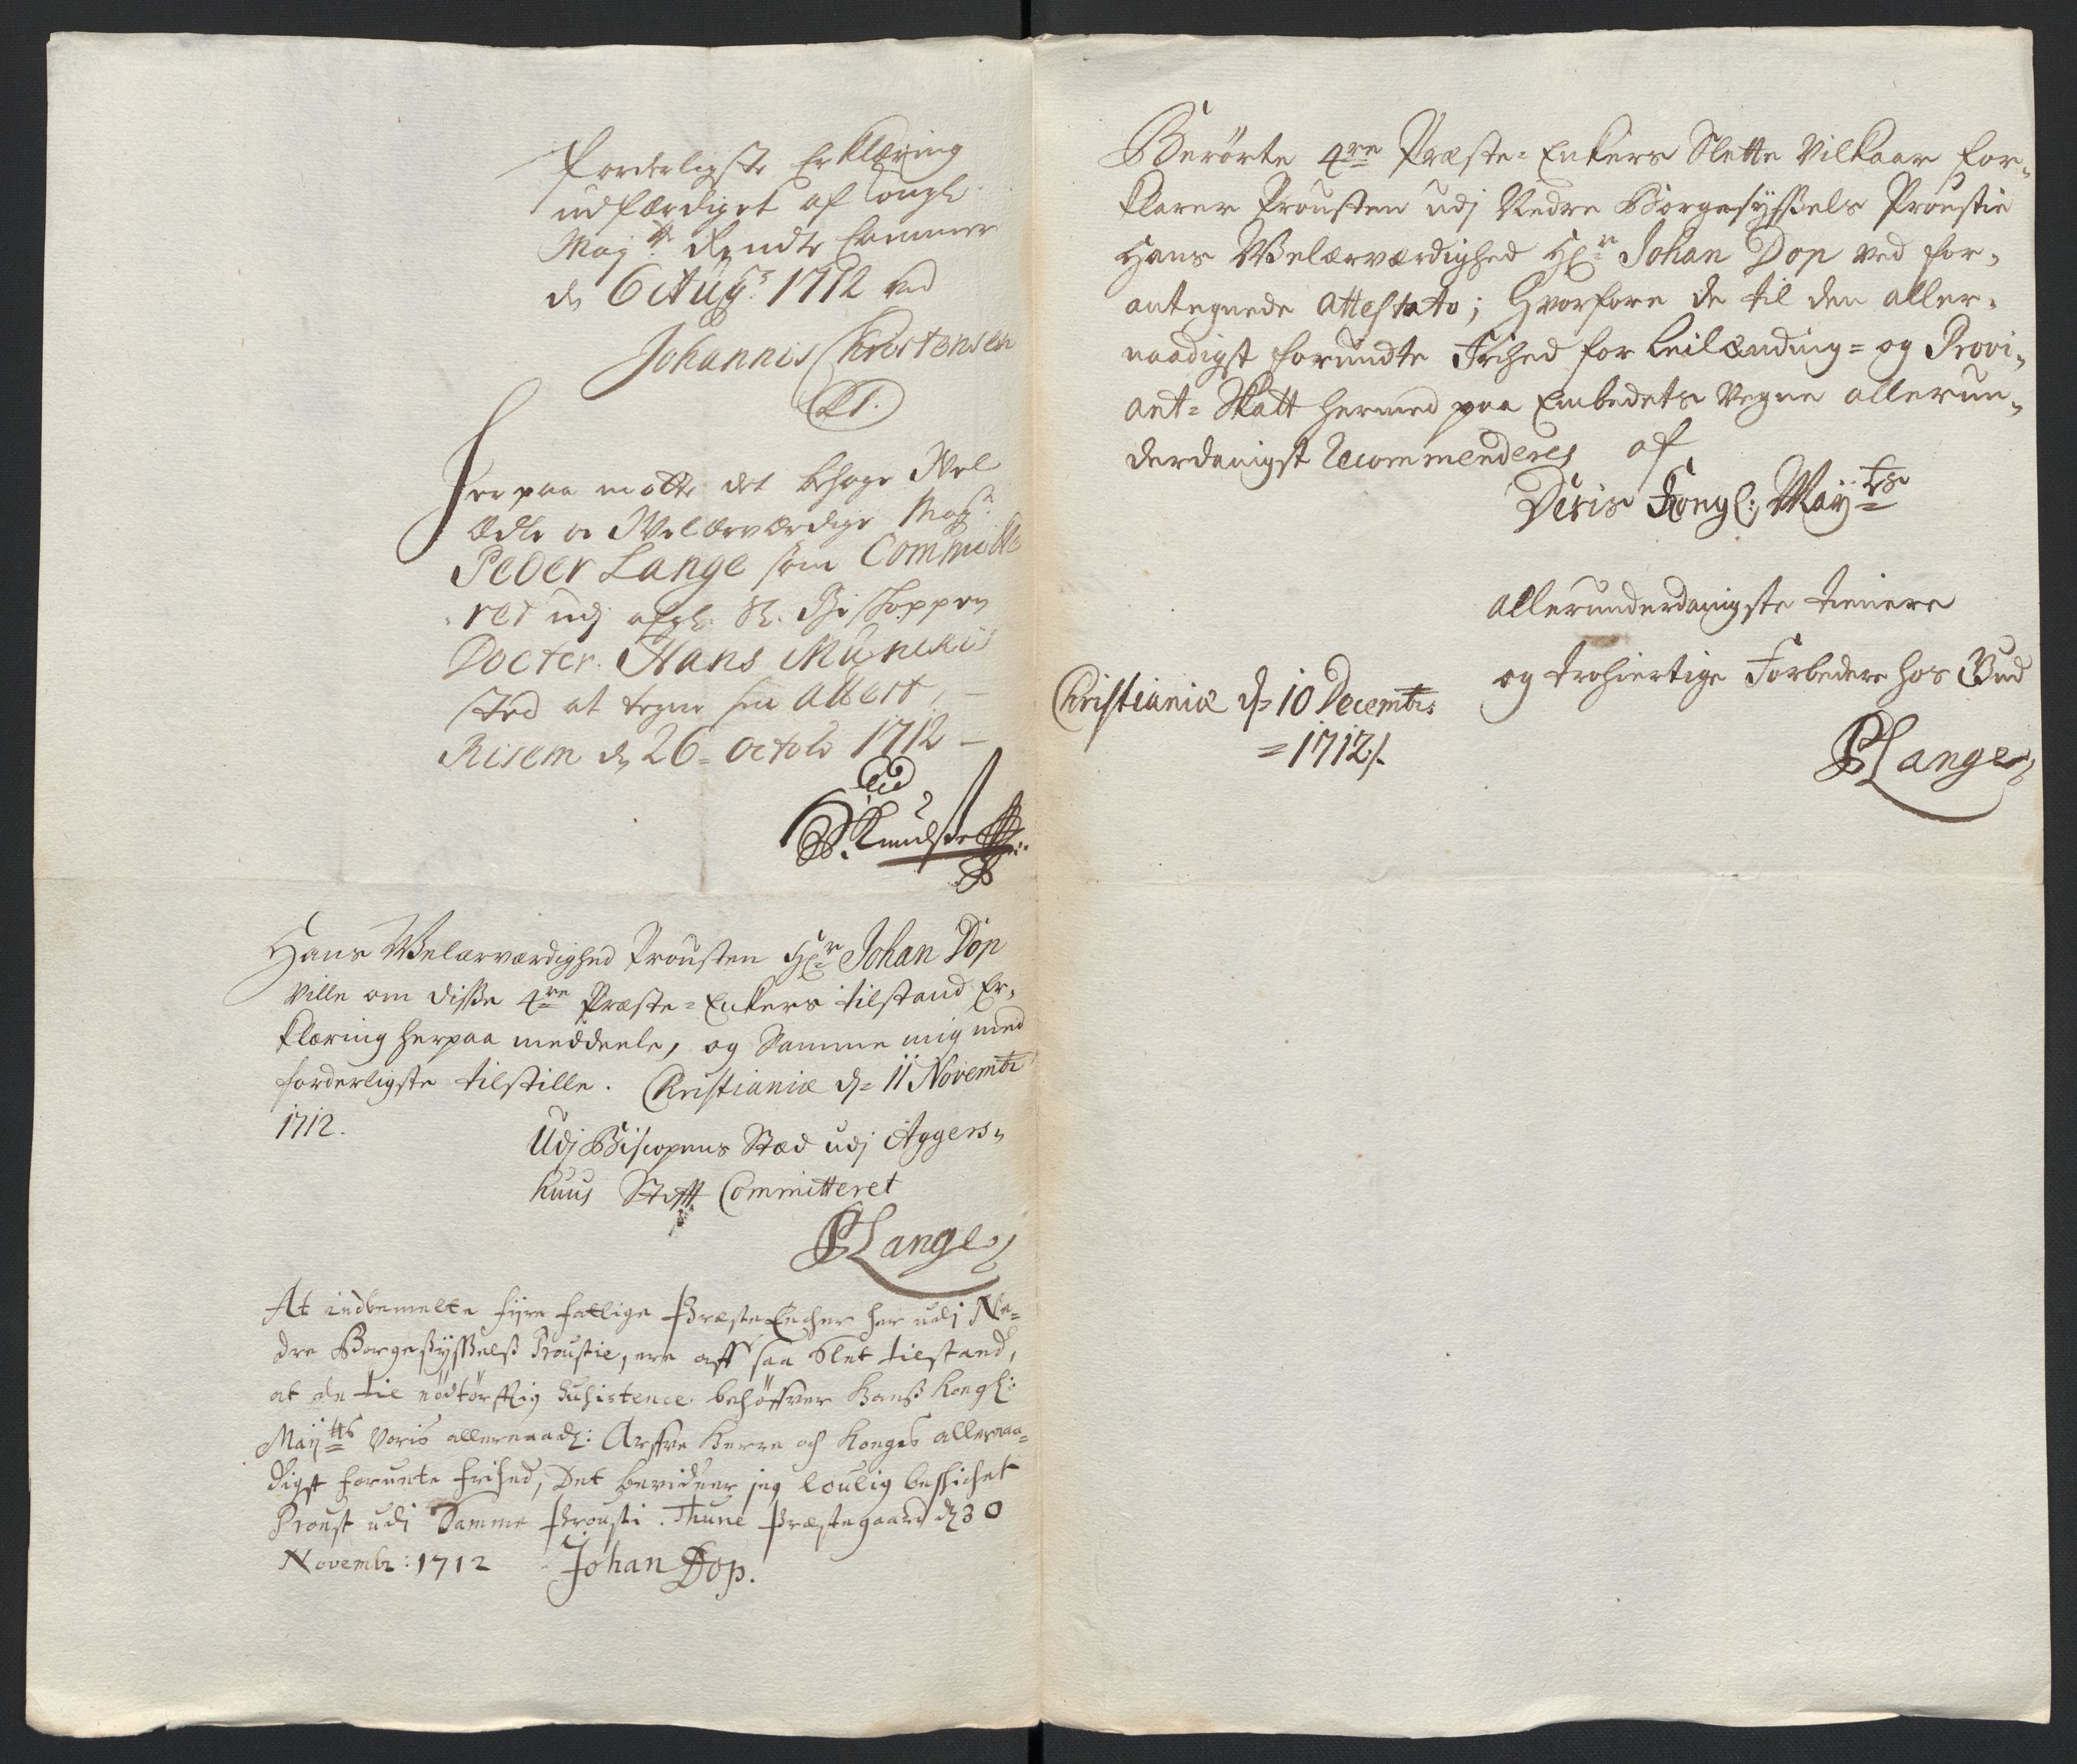 forderligste Erklæring
udfærdiget af Kongl:
Maj:ts Rendte Cammer
dn 6 Aug: 1712 ved
Johannis Christensen
Herpaa motte det behage Vel
Ædle oc Velærværdige Mag:
Peder Lange som Committe
ret udj afgl: H. Bischoppen
Docter Hans Munchis
sted at tegne sin Attest,
Risem dn 26 = Octobr 1712 –
Hans Velærværdighed Prousten Hr: Johan Dop
ville om disse 4re Præste=Enkers tilstand Er„
klæring herpaa meddeele, og Samme mig med
forderligste tilstille. Christianiæ d= 11 Novembr
1712.
Udj Biscopens Stæd udj Aggers„
huus Stifft Committeret
PLange
At indbemelte fyre fattige PræsteEncher her udi Ne=
dre Borgesyßelß Proustie, ere aff saa Slet tilstand,
at de til nödtörfftig Suhistence behöffver Hanß Kongl:
Maytts Voris allernaad: Arffve Herre och Konges allernaa=
digst forunte frihed, Det bevidner jeg loulig beskichet
Proust udi Samme Prousti. Thune Præstegaard d 30
Novembr: 1712 Johan Dop.
Berörte 4re Præste=Enkers Slette Vilkaar for„
klarer Prousten udj Nedre Borgesyßels Proustie
Hans Velærværdighed Hr: Johan Dop ved for„
antegnede Attestato; Hvorfore de til den aller„
naadigst forundte Frihed for Leilænding= og Provi„
ant=Skatt hermed paa Embedets Vegne allerun„
derdanigst Recommenderes af
Deris Kongl: Mayts
allerunderdanigste tienere
og trohiertige Forbedere hos Gud
Christianiæ d= 10 Decembrs
=1712/.
PLange